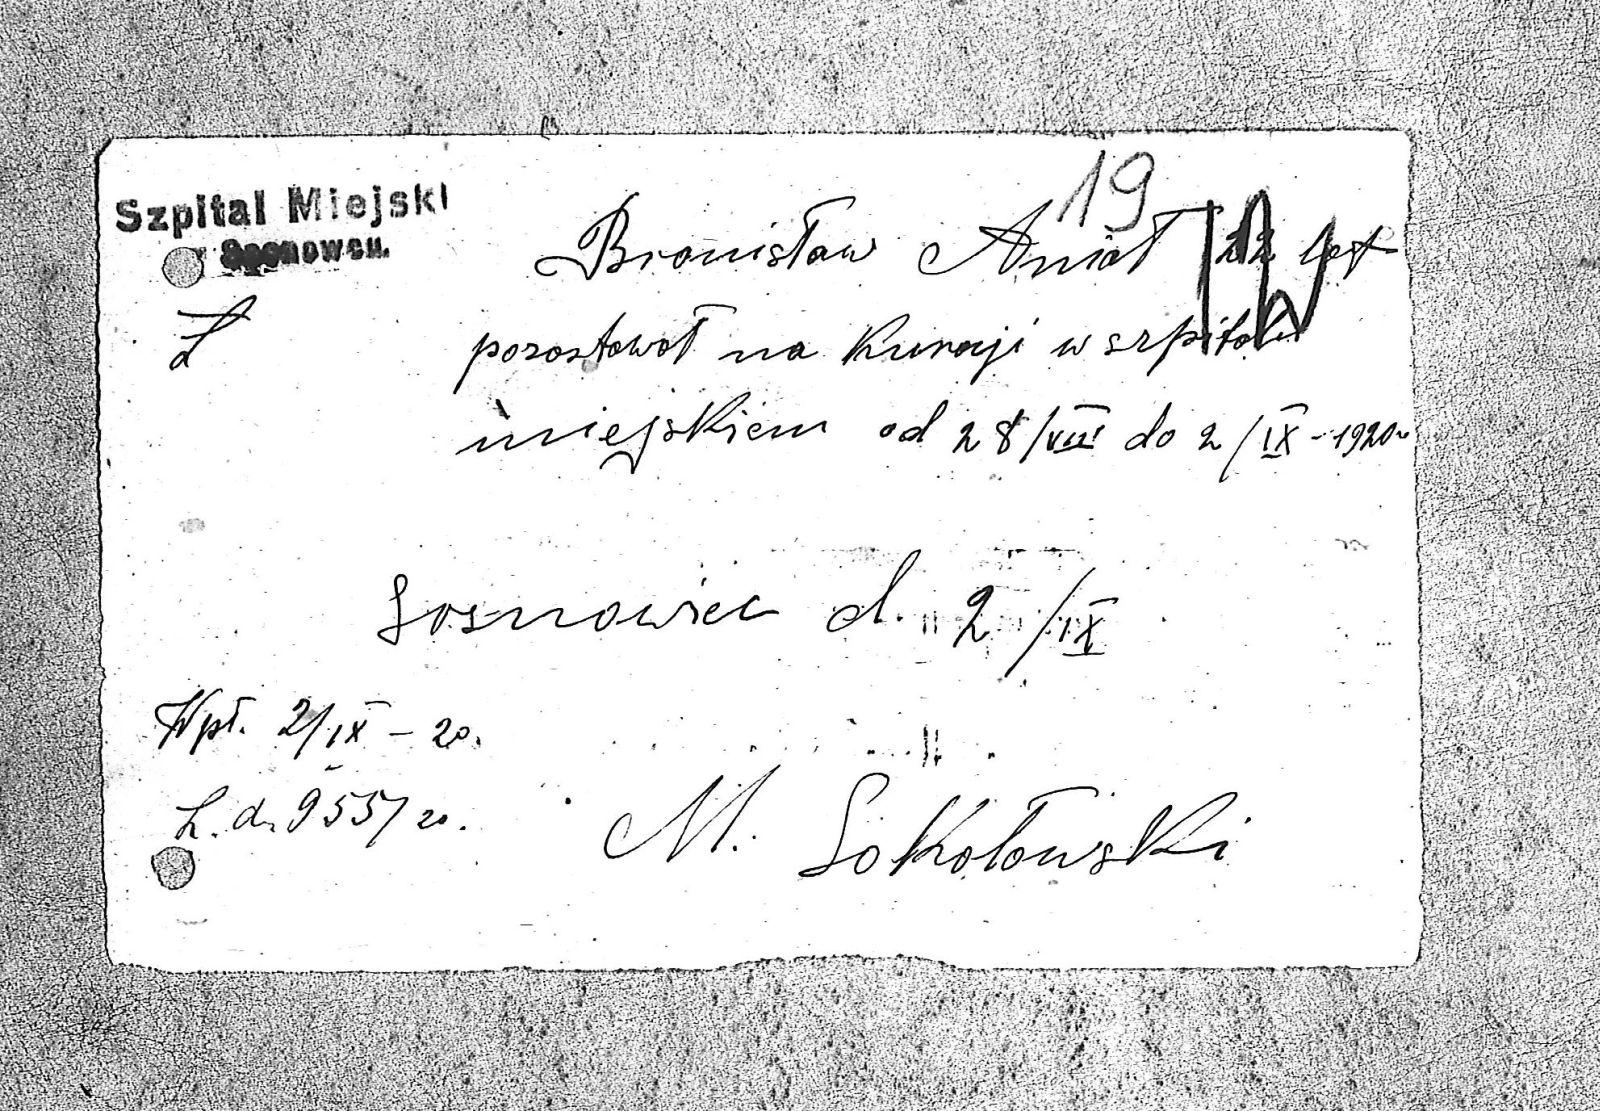 19
Szpital Miejski
w Sosnowcu.
Bronisław Anioł 22 lat
L
pozostawał na kuracji w szpitalu
miejskiem od 28/VIII do 2/IX - 1920 r
Sosnowiec d. 2/IX
Wpł. 2/IX - 20.
L. d. 955/20.
M. Sokołowski